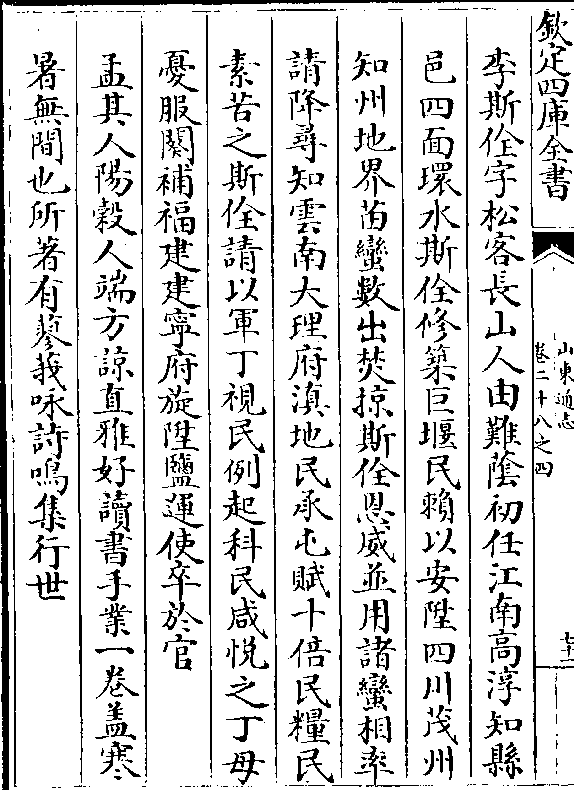 欽定四庫全書
山東通志
卷二十八之四
李斯佺字松客長山人由難蔭初任江南高淳知縣
邑四面環水斯佺修築巨堰民賴以安陞四川茂州
知州地界苗蠻數出焚掠斯佺恩威並用諸蠻相率
請降尋知雲南大理府滇地民承屯賦十倍民糧民
素苦之斯佺請以軍丁視民例起科民咸悅之丁母
憂服闋補福建建寧府旋陞鹽運使卒於官
孟其人陽穀人端方諒直雅好讀書手業一卷盖寒
暑無間也所著有蓼莪咏詩鳴集行世